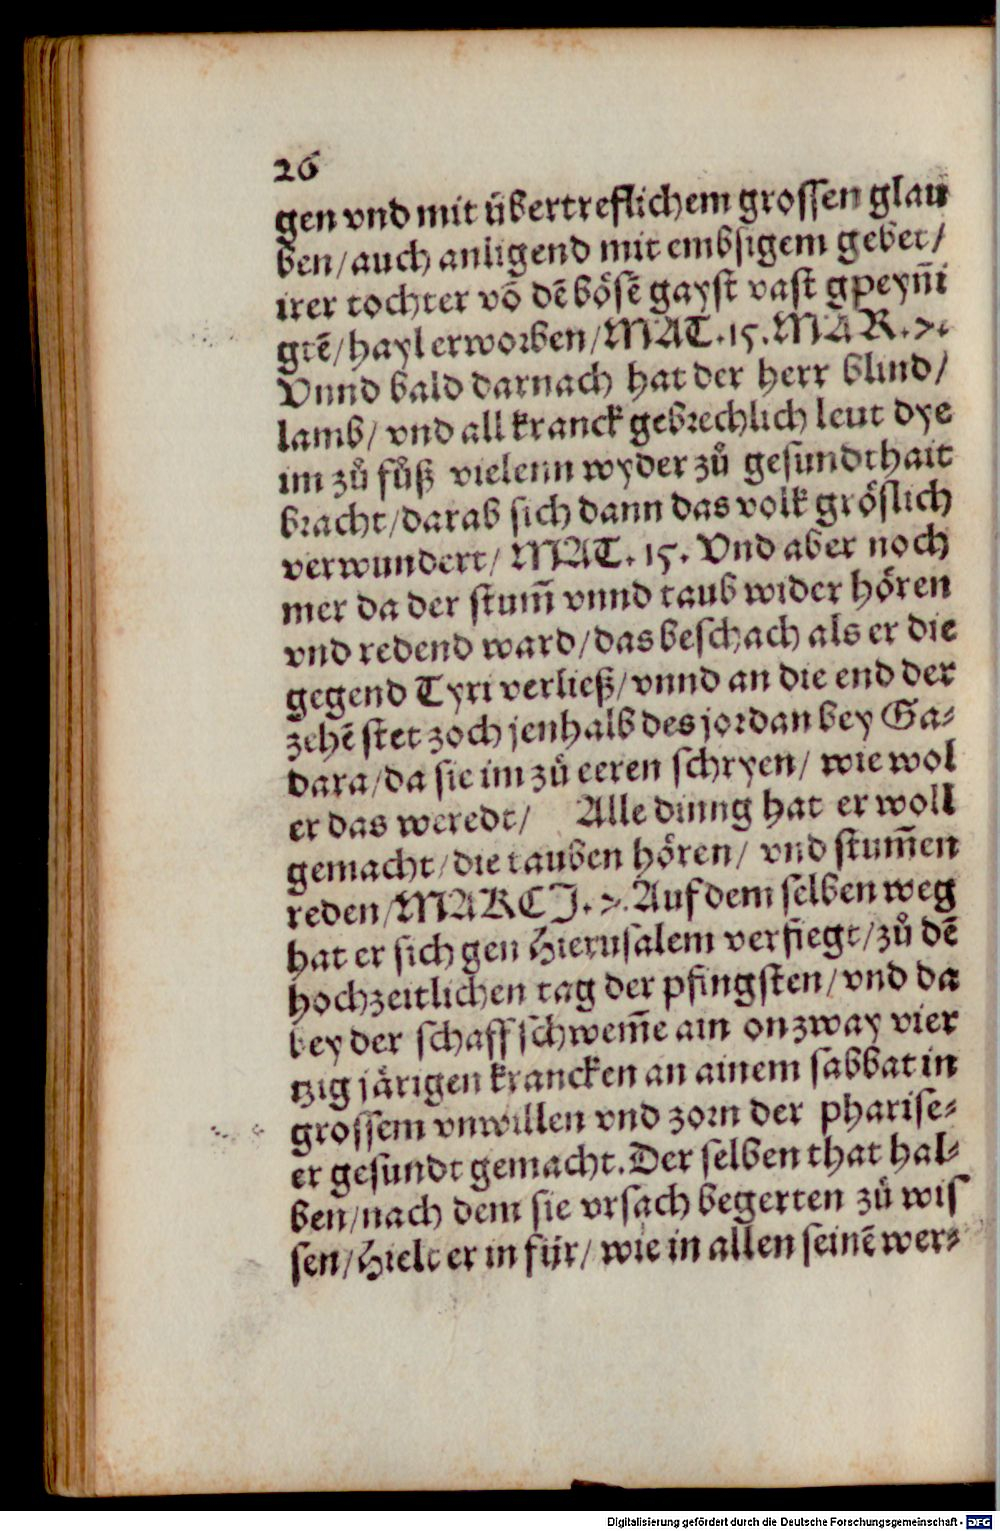 26
gen vnd mit übertreflichem grossen glau
ben/auch anligend mit embsigem gebet/
irer tochter võ dẽ bösẽ gayst vast gpeyñi
gtẽ/hayl erworben/MAT.15.MAR.7.
Vnnd bald darnach hat der herr blind/
lamb/ vnd all kranck gebrechlich leut dye
im zů fůß vielenn wyder zů gesundthait
bracht/darab sich dann das volk gröslich
verwundert/ MAT.15. Vnd aber noch
mer da der stum̃ vnnd taub wider hören
vnd redend ward/das beschach als er die
gegend Tyri verließ/vnnd an die end der
zehẽ stet zoch jenhalb des jordan bey Ga-
dara/da sie im zů eeren schryen/ wie wol
er das weredt/ Alle dinng hat er woll
gemacht/die tauben hören/ vnd stum̃en
reden/MARCI.7.Auf dem selben weg
hat er sich gen Hierusalem verfiegt/zů dẽ
hochzeitlichen tag der pfingsten/vnd da
bey der schaff schwem̃e ain onzway vier
tzig järigen krancken an ainem sabbat in
grossem vnwillen vnd zorn der pharise-
er gesundt gemacht.Der selben that hal-
ben/nach dem sie vrsach begerten zů wis
sen/Hielt er in für/ wie in allen seinẽ wer-
Digitalisierung gefördert durch die Deutsche Forschungsgemeinschaft - DFG